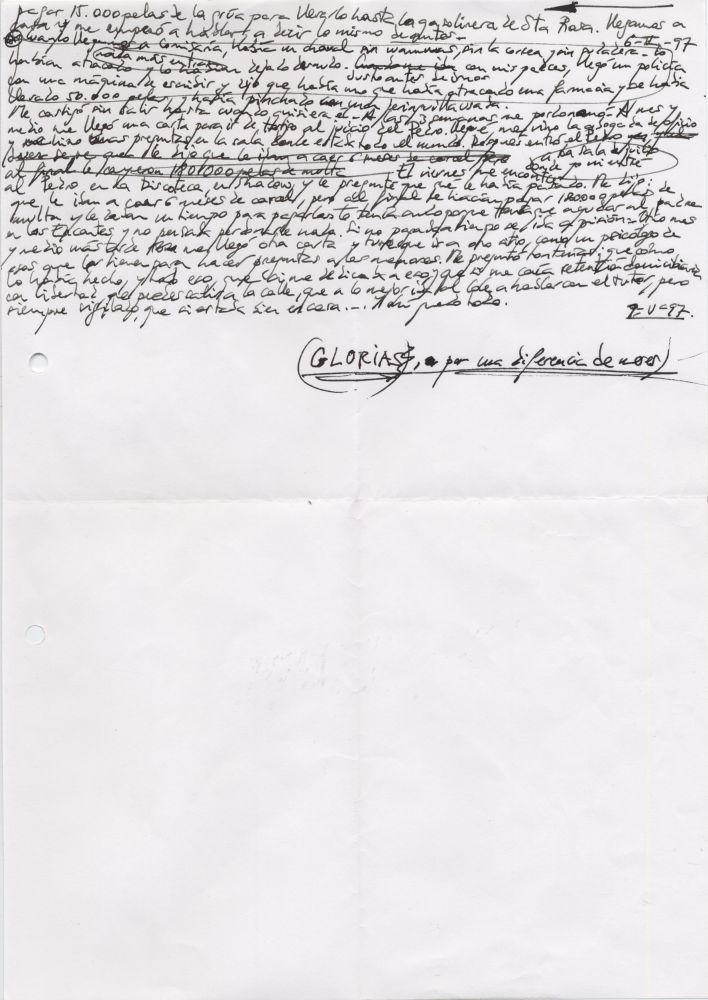 pagar 15.000 pelas de la grúa para llevarlo hasta la gasolinera de Sta Rosa. Llegamos a
casa y me empezó a hablar y a decir lo mismo de antes.-
6-II-97
Cuando llegamos a comisaría, había un chaval sin bambas, sin la correa y sin
nada más entrar,
habían atracado y lo habían dejado desnudo. con mis padres, llegó un policía
con una máquina de escribir y dijo que había uno que había atracando una farmacia y se había
llevado 50.000 pelas y había pinchado con una jeringuilla usada.
Me castigó sin salir hasta cuando quisiera él.- A las 3 semanas me perdonó.- A mes y
medio me llegó una carta para ir al juicio del Pedro. Llegué, me vino la abogada de oficio
y me hizo unas preguntas en la sala donde está todo el mundo. Después entró el Pedro
a la sala de juicio
donde yo no entré
al final le cayeron 180.000 pelas de multa El viernes me encontré
al Pedro, en la Discoteca, en Shadow, y le pregunté que qué le había pasado. Me dijo
que, le iban a caer 6 meses de cárcel, pero al final le hacían pagar 180000 pelas de
multa y le daban un tiempo para pagarlas
y no pensaba perdonarle nada. Si no pagaba a tiempo se iba a prisión.- Otro mes
y medio más tarde me llegó otra carta y tuve que ir a otro sitio, con un psicólogo de
esos que los tienen para hacer preguntas a los menores. Me preguntó tonterías, que cómo
lo había hecho, y todo eso, que si me dedicaba a eso; que si me caía retención domiciliaria
con libertad, que puedes salir a la calle, que a lo mejor a hablar con el tutor, pero
siempre vigilado, que si estaba bien en casa.-. Ahí quedó todo.
9-V-97.
(GLORIAS, por una diferencia de meses)